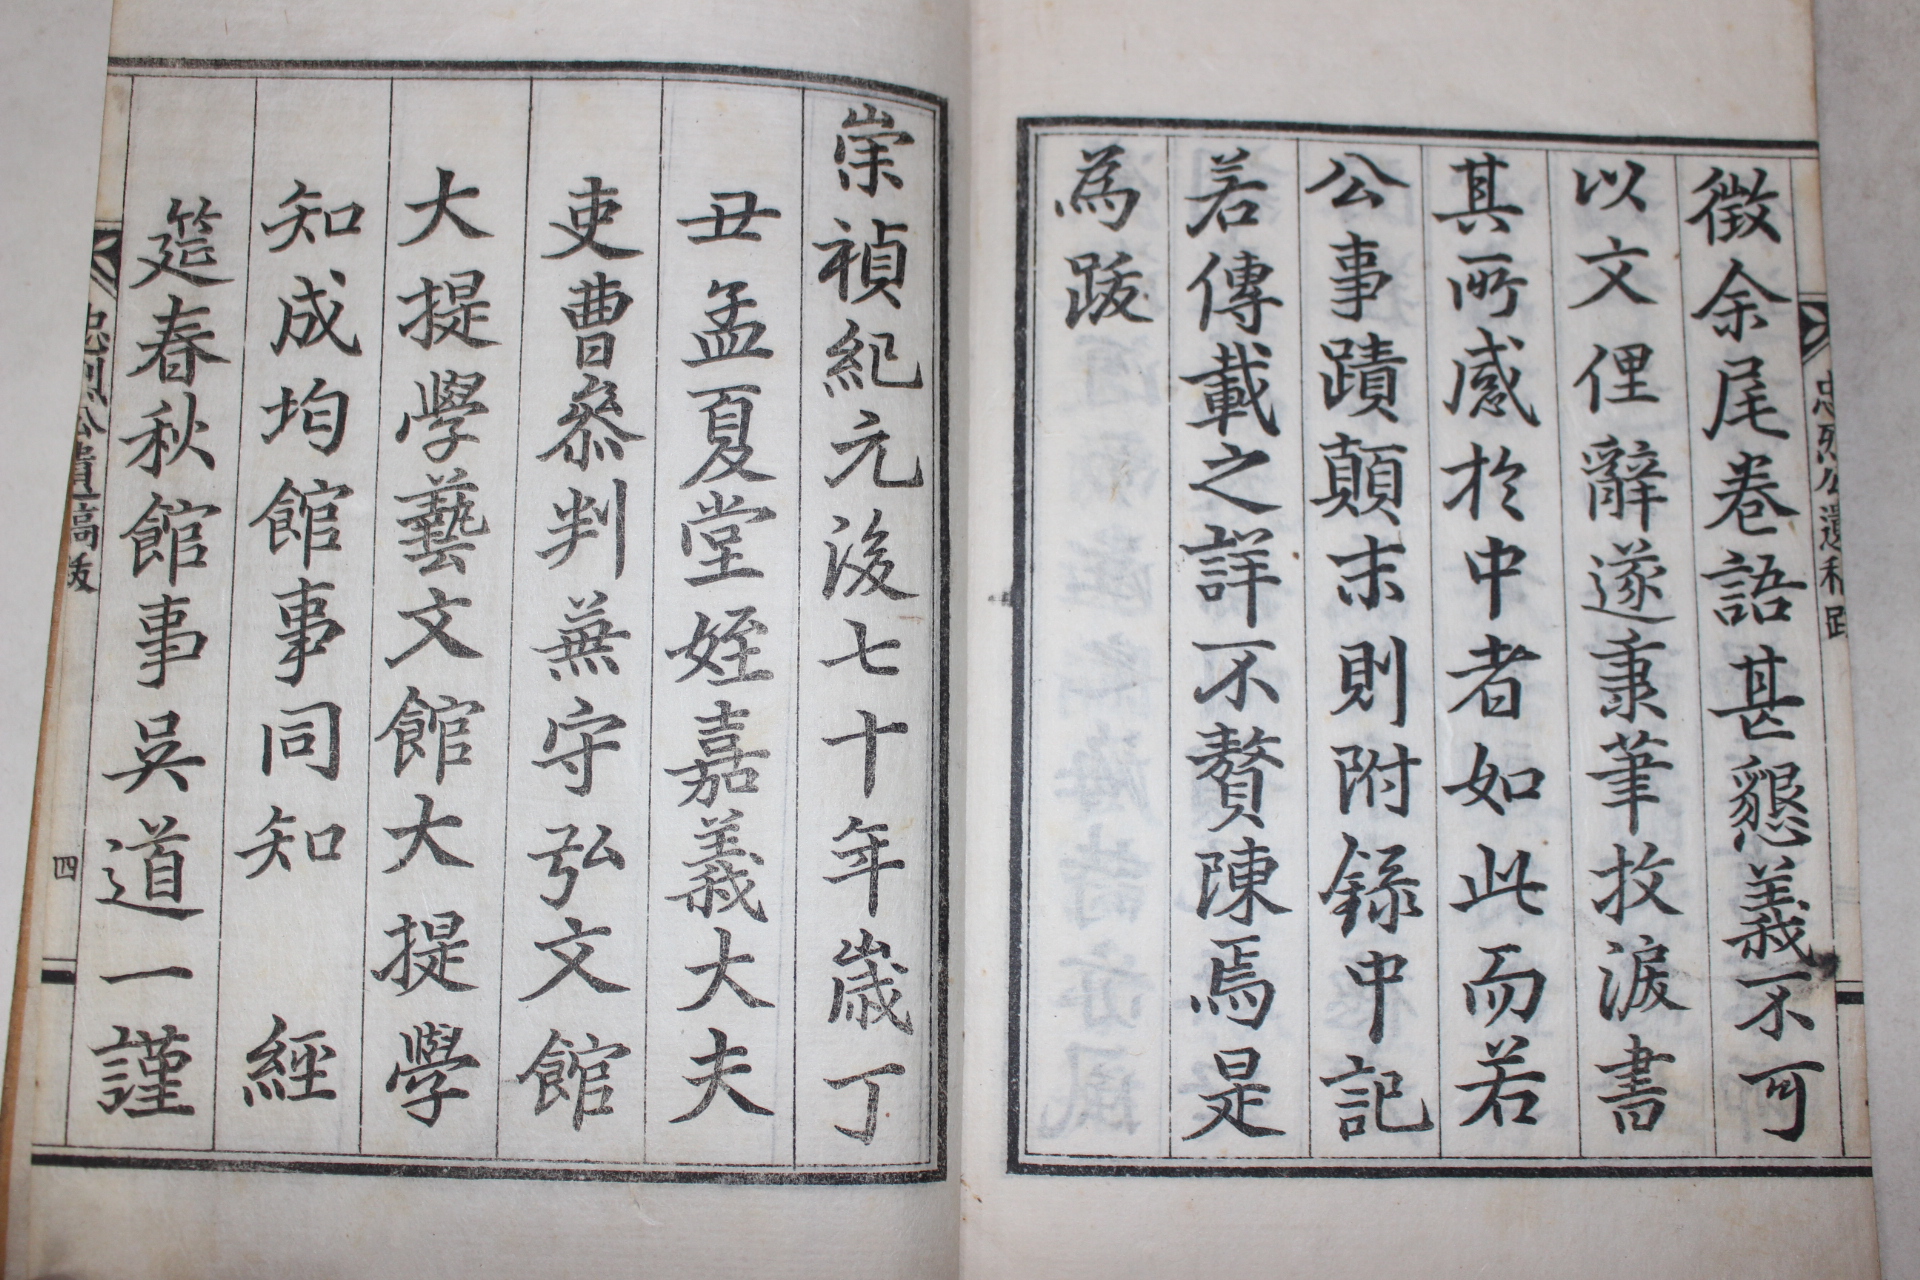 徵余尾卷語甚懇義不可
以文俚辭遂秉筆抆淚書
其所感於中者如此而若
公事蹟顛末則附錄中記
若傳載之詳不贅陳焉是
為跋
崇禎紀元後七十年歲丁
丑孟夏堂姪嘉義大夫
吏曹參判兼守弘文館
大提學藝文館大提學
知成均館事同知 經
筵春秋館事吳道一謹
忠烈公遺稿跋
四